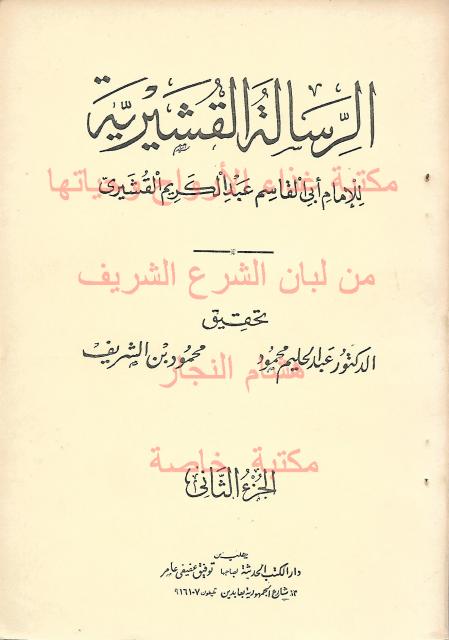 الرسالة القشيرية
مكتبة غذاء الأرواح وحياتها
للإمام أبي القاسم عبد الكريم القشيري
من لبان الشرع الشريف
تحقيق
الدكتور عبد الحليم محمود محمود بن الشريف
هشام النجار
مكتبة خاصة
الجزء الثاني
يطلب من
دار الكتب الحديثة لصاحبها توفيق عفيفي عامر
١٤ شارع الجمهورية بعابدين تليفون ٩١٦١٠٧